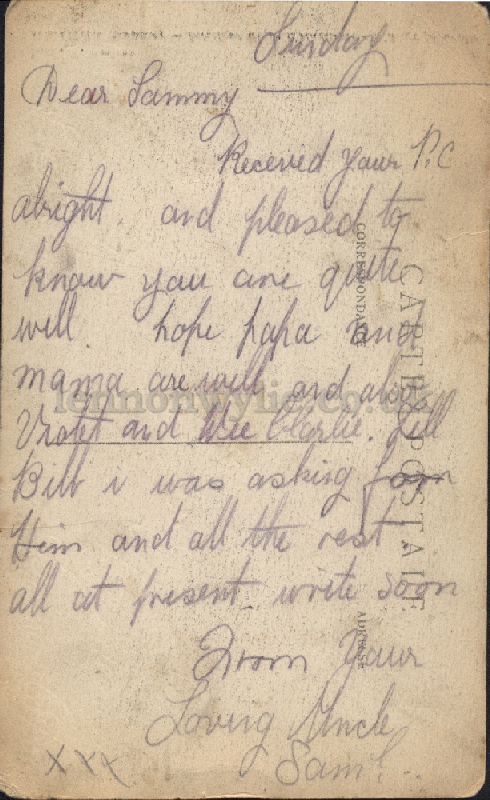 Sunday
Dear Sammy
Received your P.C
alright. and pleased to
know you are quite
well. hope papa and
mama are well and also
Violet and Wee Charlie. Tell
Bill i was asking for
Him and all the rest.
all at present. write soon
From Your
Loving Uncle
Saml.
XXX
CARTE POSTALE
CORRESPONDANCE
ADRESSE
lennonwylie.co.uk